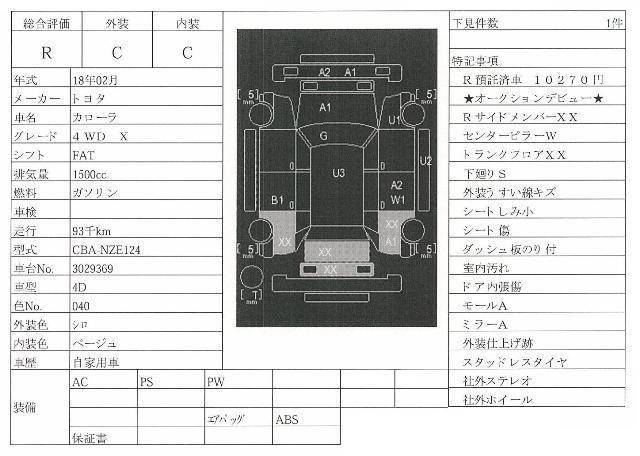 総合評価 外装 内装
R C C
年式 18年02月
メーカー トヨタ
車名 カローラ
グレード 4WD X
シフト FAT
排気量 1500cc
燃料 ガソリン
車検
走行 93千km
型式 CBA-NZE124
車台No. 3029369
車型 4D
色No. 040
外装色 シロ
内装色 ベージュ
車歴 自家用車
装備
AC PS PW
エアバッグ ABS
保証書
A2 A1
[5] [5]
mm mm
A1 U1
G
U2
U3
A2
B1 W1
XX XX
XX A1
[5] [5]
mm mm
XX
XX
[T]
mm
下見件数 1件
特記事項
R預託済車 10270円
★オークションデビュー★
RサイドメンバーXX
センターピラーW
トランクフロアXX
下廻りS
外装うすい線キズ
シートしみ小
シート傷
ダッシュ板のり付
室内汚れ
ドア内張傷
モールA
ミラーA
外装仕上げ跡
スタッドレスタイヤ
社外ステレオ
社外ホイール